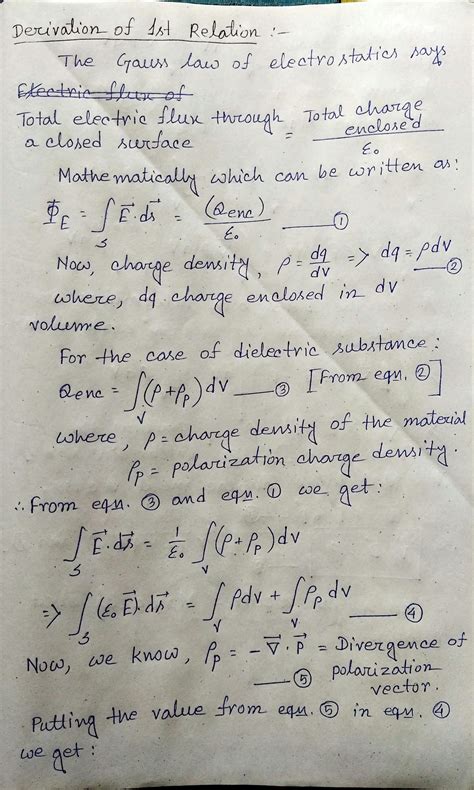 Derivation of 1st Relation :-
The Gauss law of electrostatics says
Electric flux of
Total electric flux through a closed surface = Total charge enclosed / ε₀
Mathematically which can be written as:
Φ_E = ∫_S E⃗·ds⃗ = (Qenc)/ε₀ —— ①
Now, charge density, ρ = dq/dv => dq = ρdv —— ②
where, dq charge enclosed in dv
volume.
For the case of dielectric substance:
Qenc = ∫_V (ρ+ρ_p) dv —— ③ [From eqn. ②]
where, ρ = charge density of the material
ρ_p = polarization charge density.
∴ From eqn. ③ and eqn. ① we get:
∫_S E⃗·ds⃗ = 1/ε₀ ∫_V (ρ+ρ_p) dv
=> ∫_S (ε₀E⃗)·ds⃗ = ∫_V ρdv + ∫_V ρ_p dv —— ④
Now, we know, ρ_p = -∇⃗·P⃗ = Divergence of
—— ⑤ polarization
vector.
Putting the value from eqn. ⑤ in eqn. ④
we get: